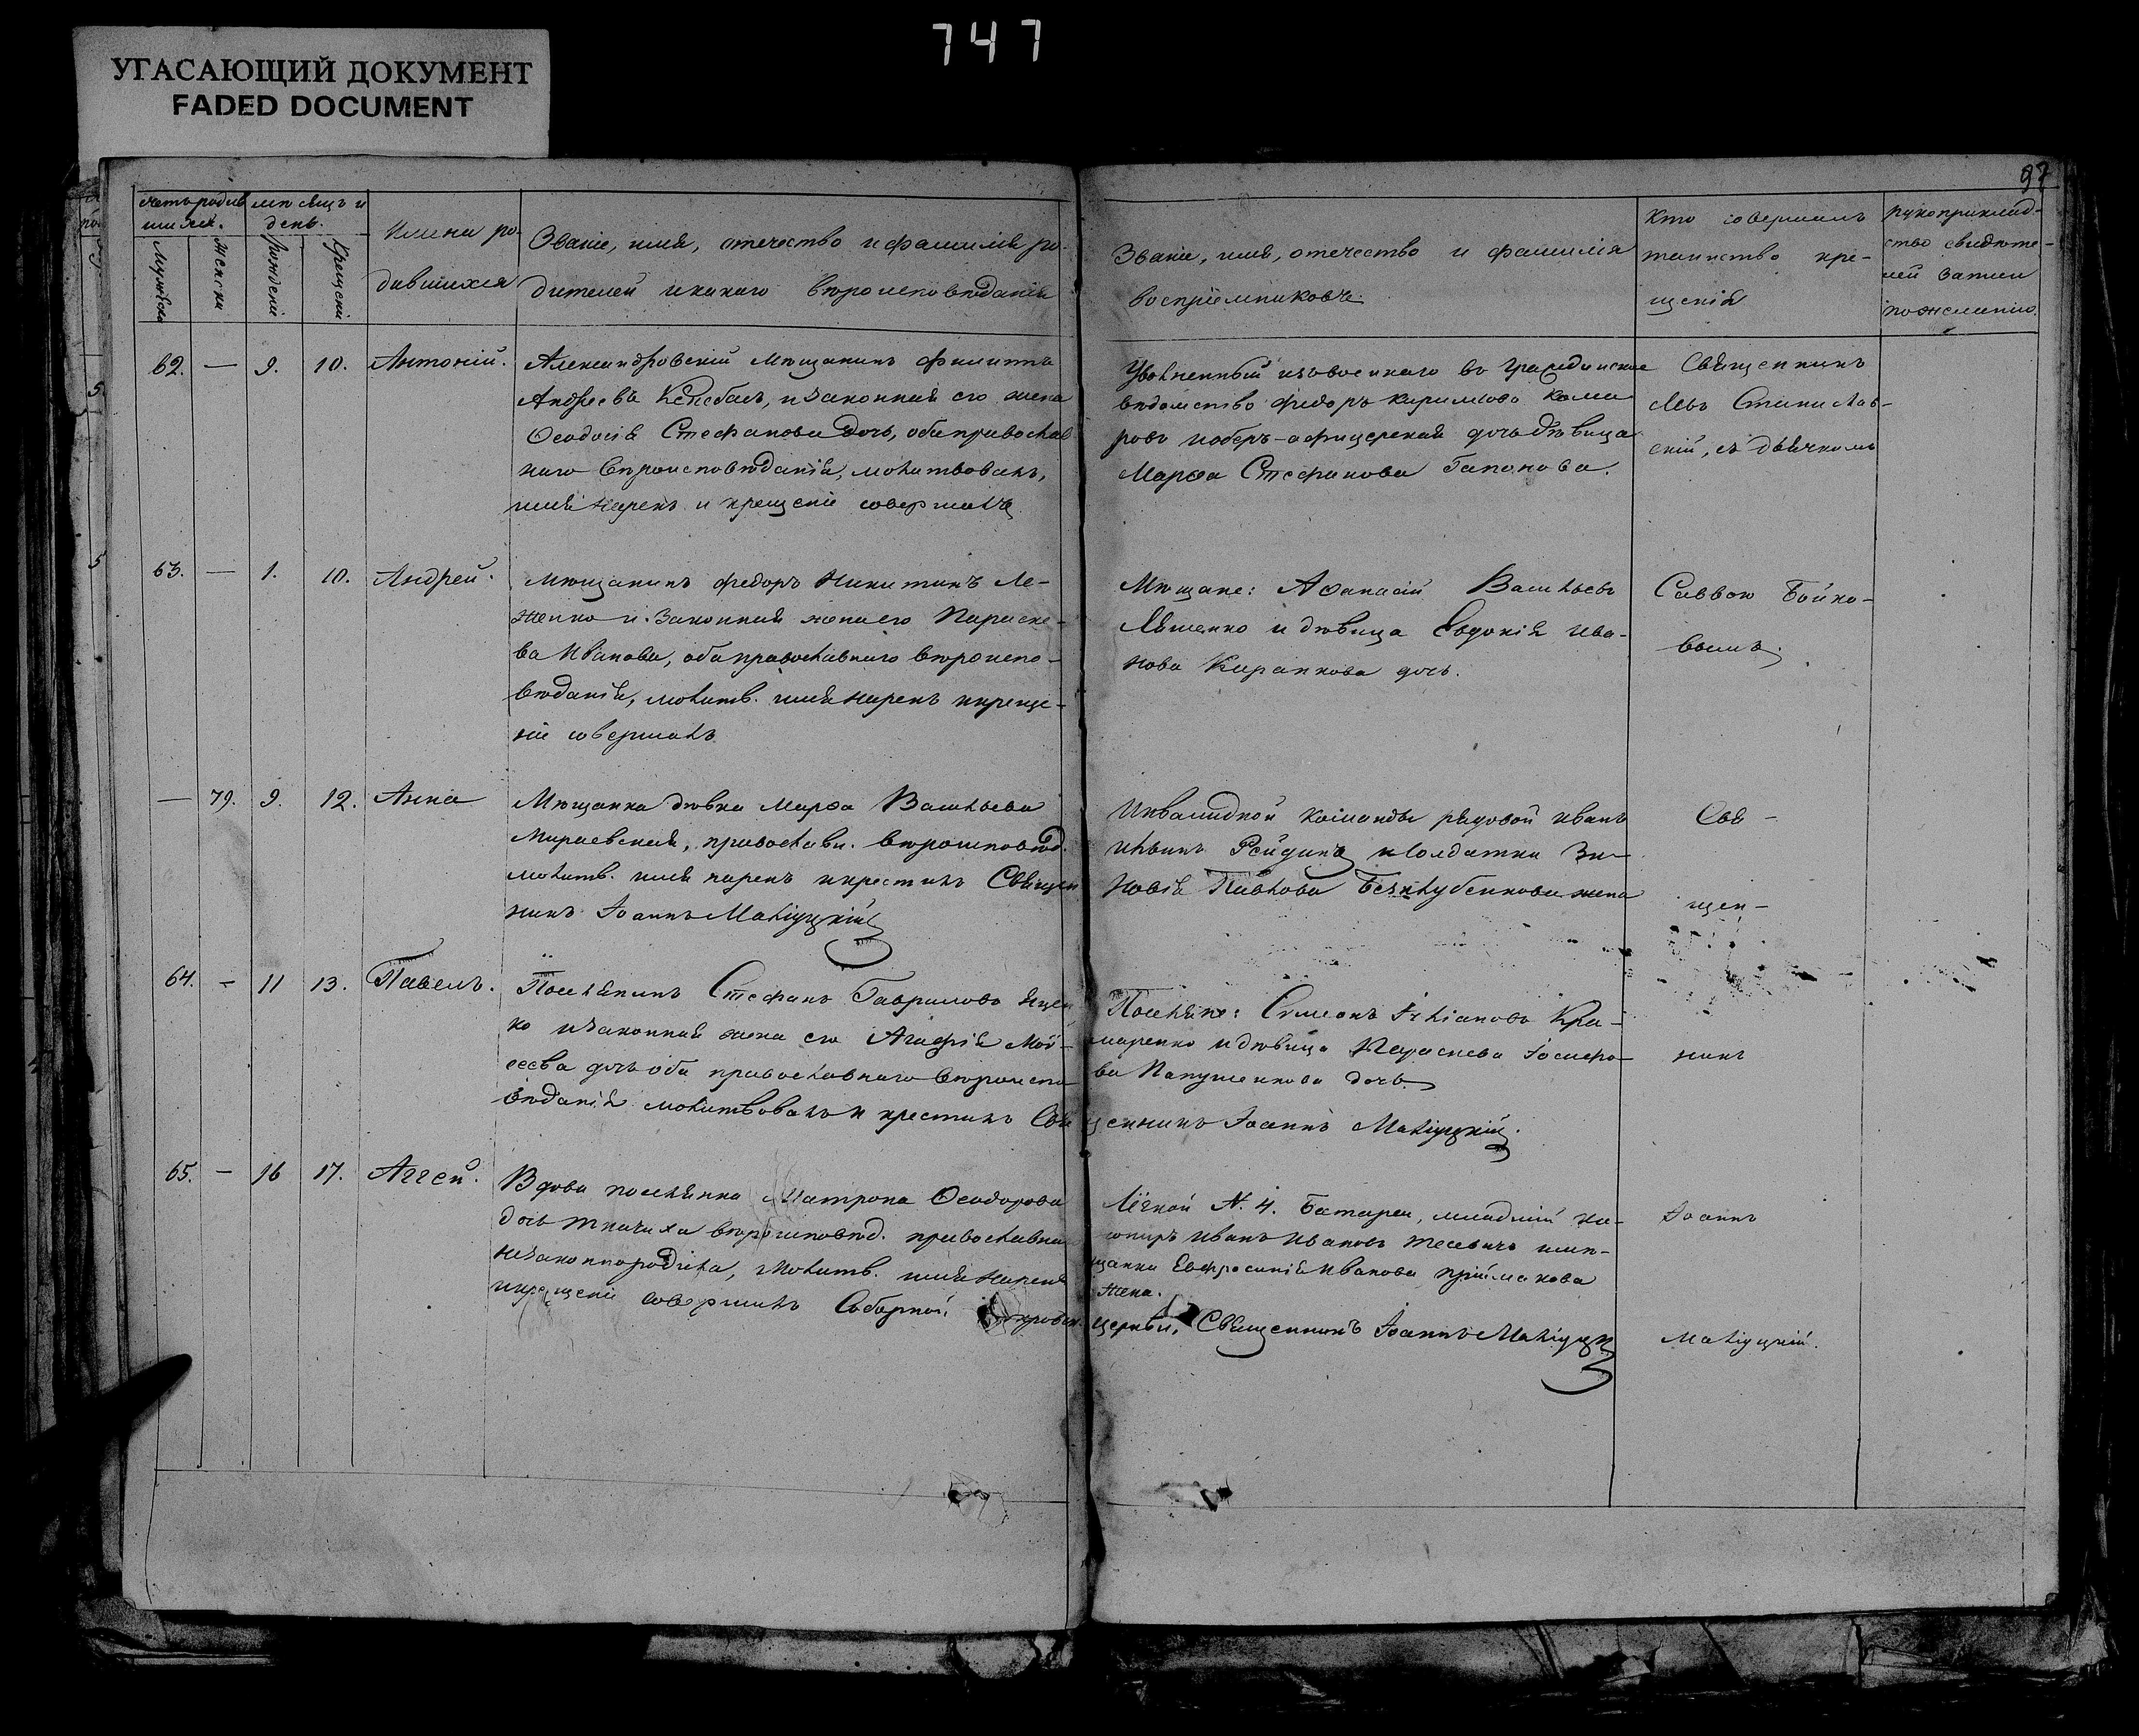 747
УГАСАЮЩИЙ ДОКУМЕНТ
FADED DOCUMENT
97
Счетъ родив
шихся.
мѣсяцъ и
день.
Мужеска
Женска
Рожденія
Крещенія
Имена ро-
дившихся
Званіе, имя, отечество и фамилія ро-
дителей и какаго вѣроисповѣданія
Званіе, имя, отечество и фамилія
воспріемниковъ.
Кто совершалъ
таинство кре-
щенія
Рукоприклад-
ство свидѣте-
лей записи
по желанію.
62. — 9. 10. Антоній.
Александровскій Мѣщанинъ Филиппъ
Андреевъ и законная его жена
Ѳеодосія Стефанова дочь, оба православ
наго вѣроисповѣданія, молитвовалъ,
имя нарекъ и крещеніе совершилъ
Уволненный изъ военнаго въ Гражданское
вѣдомство Федоръ Кириловъ Кома
ровъ и оберъ-афицерская дочь дѣвица
Марѳа Стефанова Гапонова.
Священникъ
Левъ Станислав-
скій, съ дьячкомъ
63. — 1. 10. Андрей.
Мѣщанинъ Федоръ Никитинъ Ле-
женко и законная жена его Параске-
ва Иванова, оба православнаго вѣроиспо-
вѣданія, молитв. имя нарекъ и креще-
ніе совершилъ
Мѣщане: Аѳанасій Васильевъ
Ляшенко и дѣвица Евдокія Ива-
нова Каранкова дочь.
Саввою Бойко-
вымъ.
— 79. 9. 12. Анна
Мѣщанка дѣвка Марѳа Васильева
Мираевская, православн. вѣроисповѣд.
молитв. имя нарекъ и крестилъ Священ
никъ Іоаннъ Малѣуцкій
Инвалидной команды рядовой Иванъ
Ильинъ Рейдинъ и солдатка Зи-
новія Павлова Безклубенкова жена
Свя-
щен-
64. — 11 13. Павелъ.
Поселянинъ Стефанъ Гавриловъ Яцен
ко и законная жена его Агафія Мой-
сеева дочь оба православнаго вѣроиспо
вѣданія молитвовалъ и крестилъ Свя
Поселяне: Симеонъ Іуліановъ Кра-
маренко и дѣвица Параскева Іосифо-
ва Папушенкова дочь.
щенникъ Іоаннъ Малѣуцкій.
никъ
65. — 16 17. Аггей.
Вдова поселянка Матрона Ѳеодорова
дочь Ткачиха вѣроисповѣд. православна
незаконнородила, молитв. имя нарекъ
и крещеніе совершилъ Соборной, Покровск.
Лёгкой N. 4. Батареи, младшій ка-
нониръ Иванъ Ивановъ и мѣ-
щанка Евфросинія Иванова Пріймакова
жена.
церкви, Священникъ Іоаннъ Малѣуцкі
Іоаннъ
Малѣуцкій.